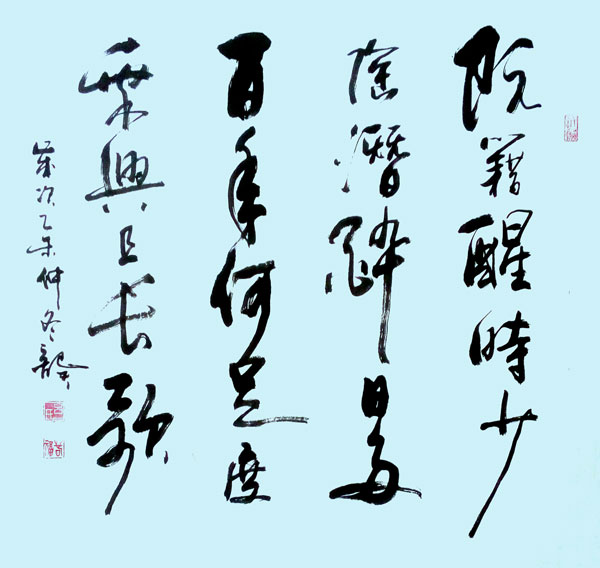 阮籍醒時少
陶潛醉日多
百年何足度
乘興且長歌
歲次乙未仲冬